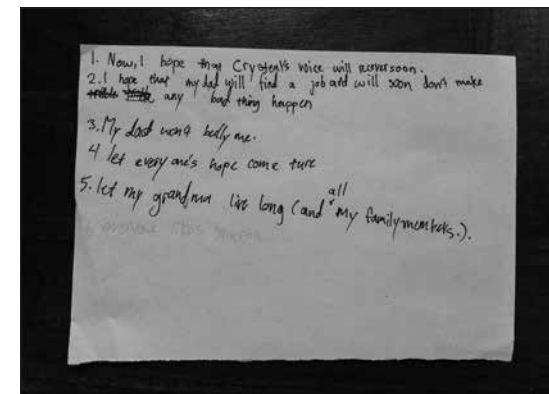 1. Now, I hope that Crysteal's voice will recover soon.
2. I hope that my dad will find a job and will soon don't make
any bad thing happen
3. My dad won't bully me.
4 let every one's hope come ture
5. let my grandma live long (and all my family members.).
6 everyone likes